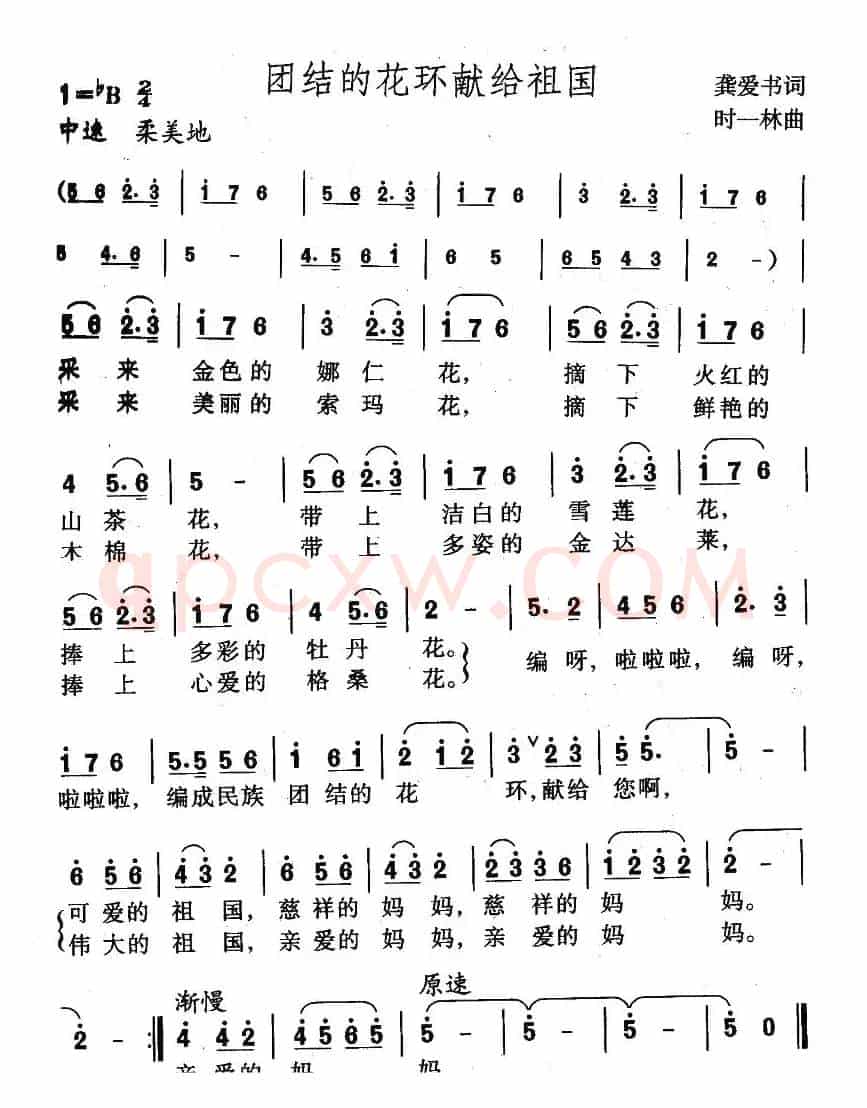 团结的花环献给祖国
1=♭B 2/4
龚爱书词
中速 柔美地
时一林曲
(5 6 2. 3 | 1 7 6 | 5 6 2. 3 | 1 7 6 | 3 2. 3 | 1 7 6 |
5 4. 6 | 5 - | 4. 5 6 1 | 6 5 | 6 5 4 3 | 2 -) |
5 6 2. 3 | 1 7 6 | 3 2. 3 | 1 7 6 | 5 6 2. 3 | 1 7 6 |
采 来 金色的 娜 仁 花, 摘 下 火红的
采 来 美丽的 索 玛 花, 摘 下 鲜艳的
4 5. 6 | 5 - | 5 6 2. 3 | 1 7 6 | 3 2. 3 | 1 7 6 |
山 茶 花, 带 上 洁白的 雪 莲 花,
木 棉 花, 带 上 多姿的 金 达 莱,
qpcxw.com
5 6 2. 3 | 1 7 6 | 4 5. 6 | 2 - | 5. 2 | 4 5 6 | 2. 3 |
捧 上 多彩的 牡 丹 花。 编 呀, 啦啦啦, 编 呀,
捧 上 心爱的 格 桑 花。
1 7 6 | 5. 5 5 6 | 1 6 1 | 2 1 2 | 3 ∨ 2 3 | 5 5. | 5 - |
啦啦啦, 编成民族 团 结的 花 环, 献给 您啊,
6 5 6 | 4 3 2 | 6 5 6 | 4 3 2 | 2 3 3 6 | 1 2 3 2 | 2 - |
可 爱的 祖 国, 慈 祥的 妈 妈, 慈 祥的 妈 妈。
伟 大的 祖 国, 亲 爱的 妈 妈, 亲 爱的 妈 妈。
渐慢 原速
2 - :‖ 4 4 2 | 4 5 6 5 | 5 - | 5 - | 5 - | 5 0 ‖
亲 爱的 妈 妈